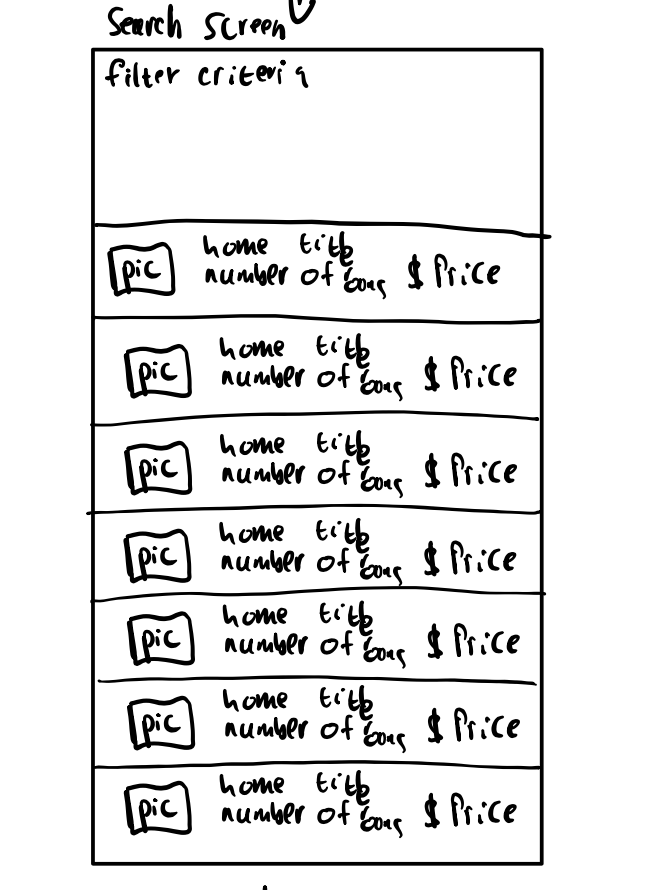 Search Screen
filter criteria
pic
home title
number of rooms
$ Price
pic
home title
number of rooms
$ Price
pic
home title
number of rooms
$ Price
pic
home title
number of rooms
$ Price
pic
home title
number of rooms
$ Price
pic
home title
number of rooms
$ Price
pic
home title
number of rooms
$ Price